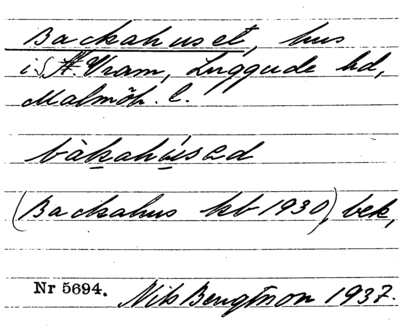 Backahuset, hus
i N. Vram, Luggude hd,
Malmöh. l.
bàkahúsəd
(Backahus kb 1930), bek,
Nr 5694. Nils Bengtson 1937.